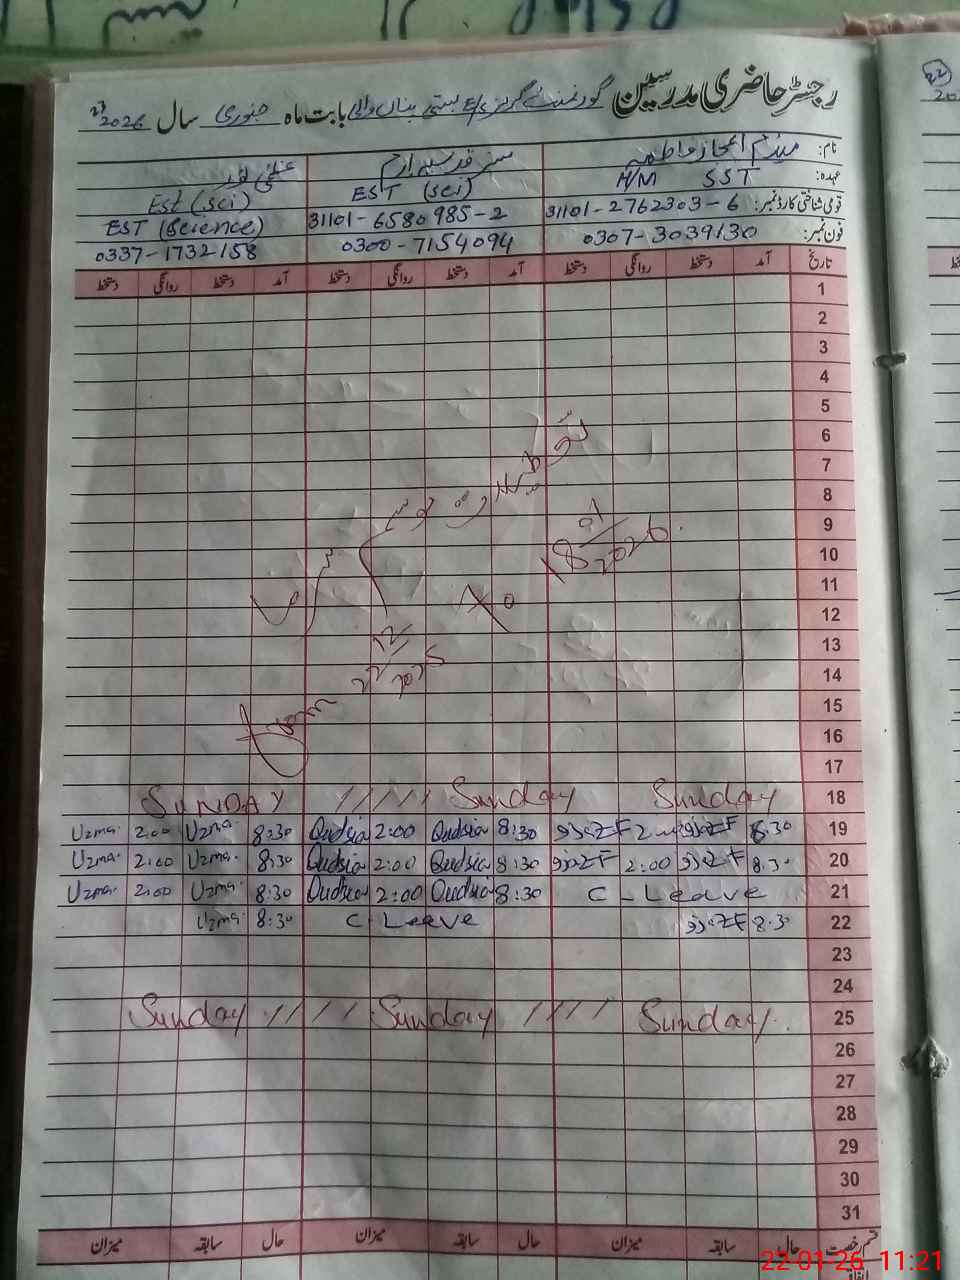 رجسٹر حاضری مدرسین گورنمنٹ گرلز E/S بستی بناں والی بابت ماہ جنوری سال 2026
نام: میڈم اعجاز فاطمہ مسز قدسیہ ارم عظمیٰ نور
عہدہ: H/M SST EST (sci) Est (sci)
قومی شناختی کارڈ نمبر: 31101-2762303-6 31101-6580985-2 EST (Science)
فون نمبر: 0307-3039130 0300-7154094 0337-1732158
تاریخ آمد دستخط روانگی دستخط آمد دستخط روانگی دستخط آمد دستخط روانگی دستخط
1
2
3
4
5
6
7
8
9
10
11
12
13
14
15
16
17
تعطیلات موسم سرما
from 22/12/2025 to 18/01/2026
SUNDAY Sunday Sunday 18
Uzma 2:00 Uzma 8:30 Qudsia 2:00 Qudsia 8:30 8:30 19
Uzma 2:00 Uzma 8:30 Qudsia 2:00 Qudsia 8:30 2:00 8:30 20
Uzma 2:00 Uzma 8:30 Qudsia 2:00 Qudsia 8:30 C - Leave 21
Uzma 8:30 C - Leave 8:30 22
23
24
Sunday Sunday Sunday 25
26
27
28
29
30
31
قسم رخصت حال سابقہ میزان حال سابقہ میزان حال سابقہ میزان
22-01-26 11:21